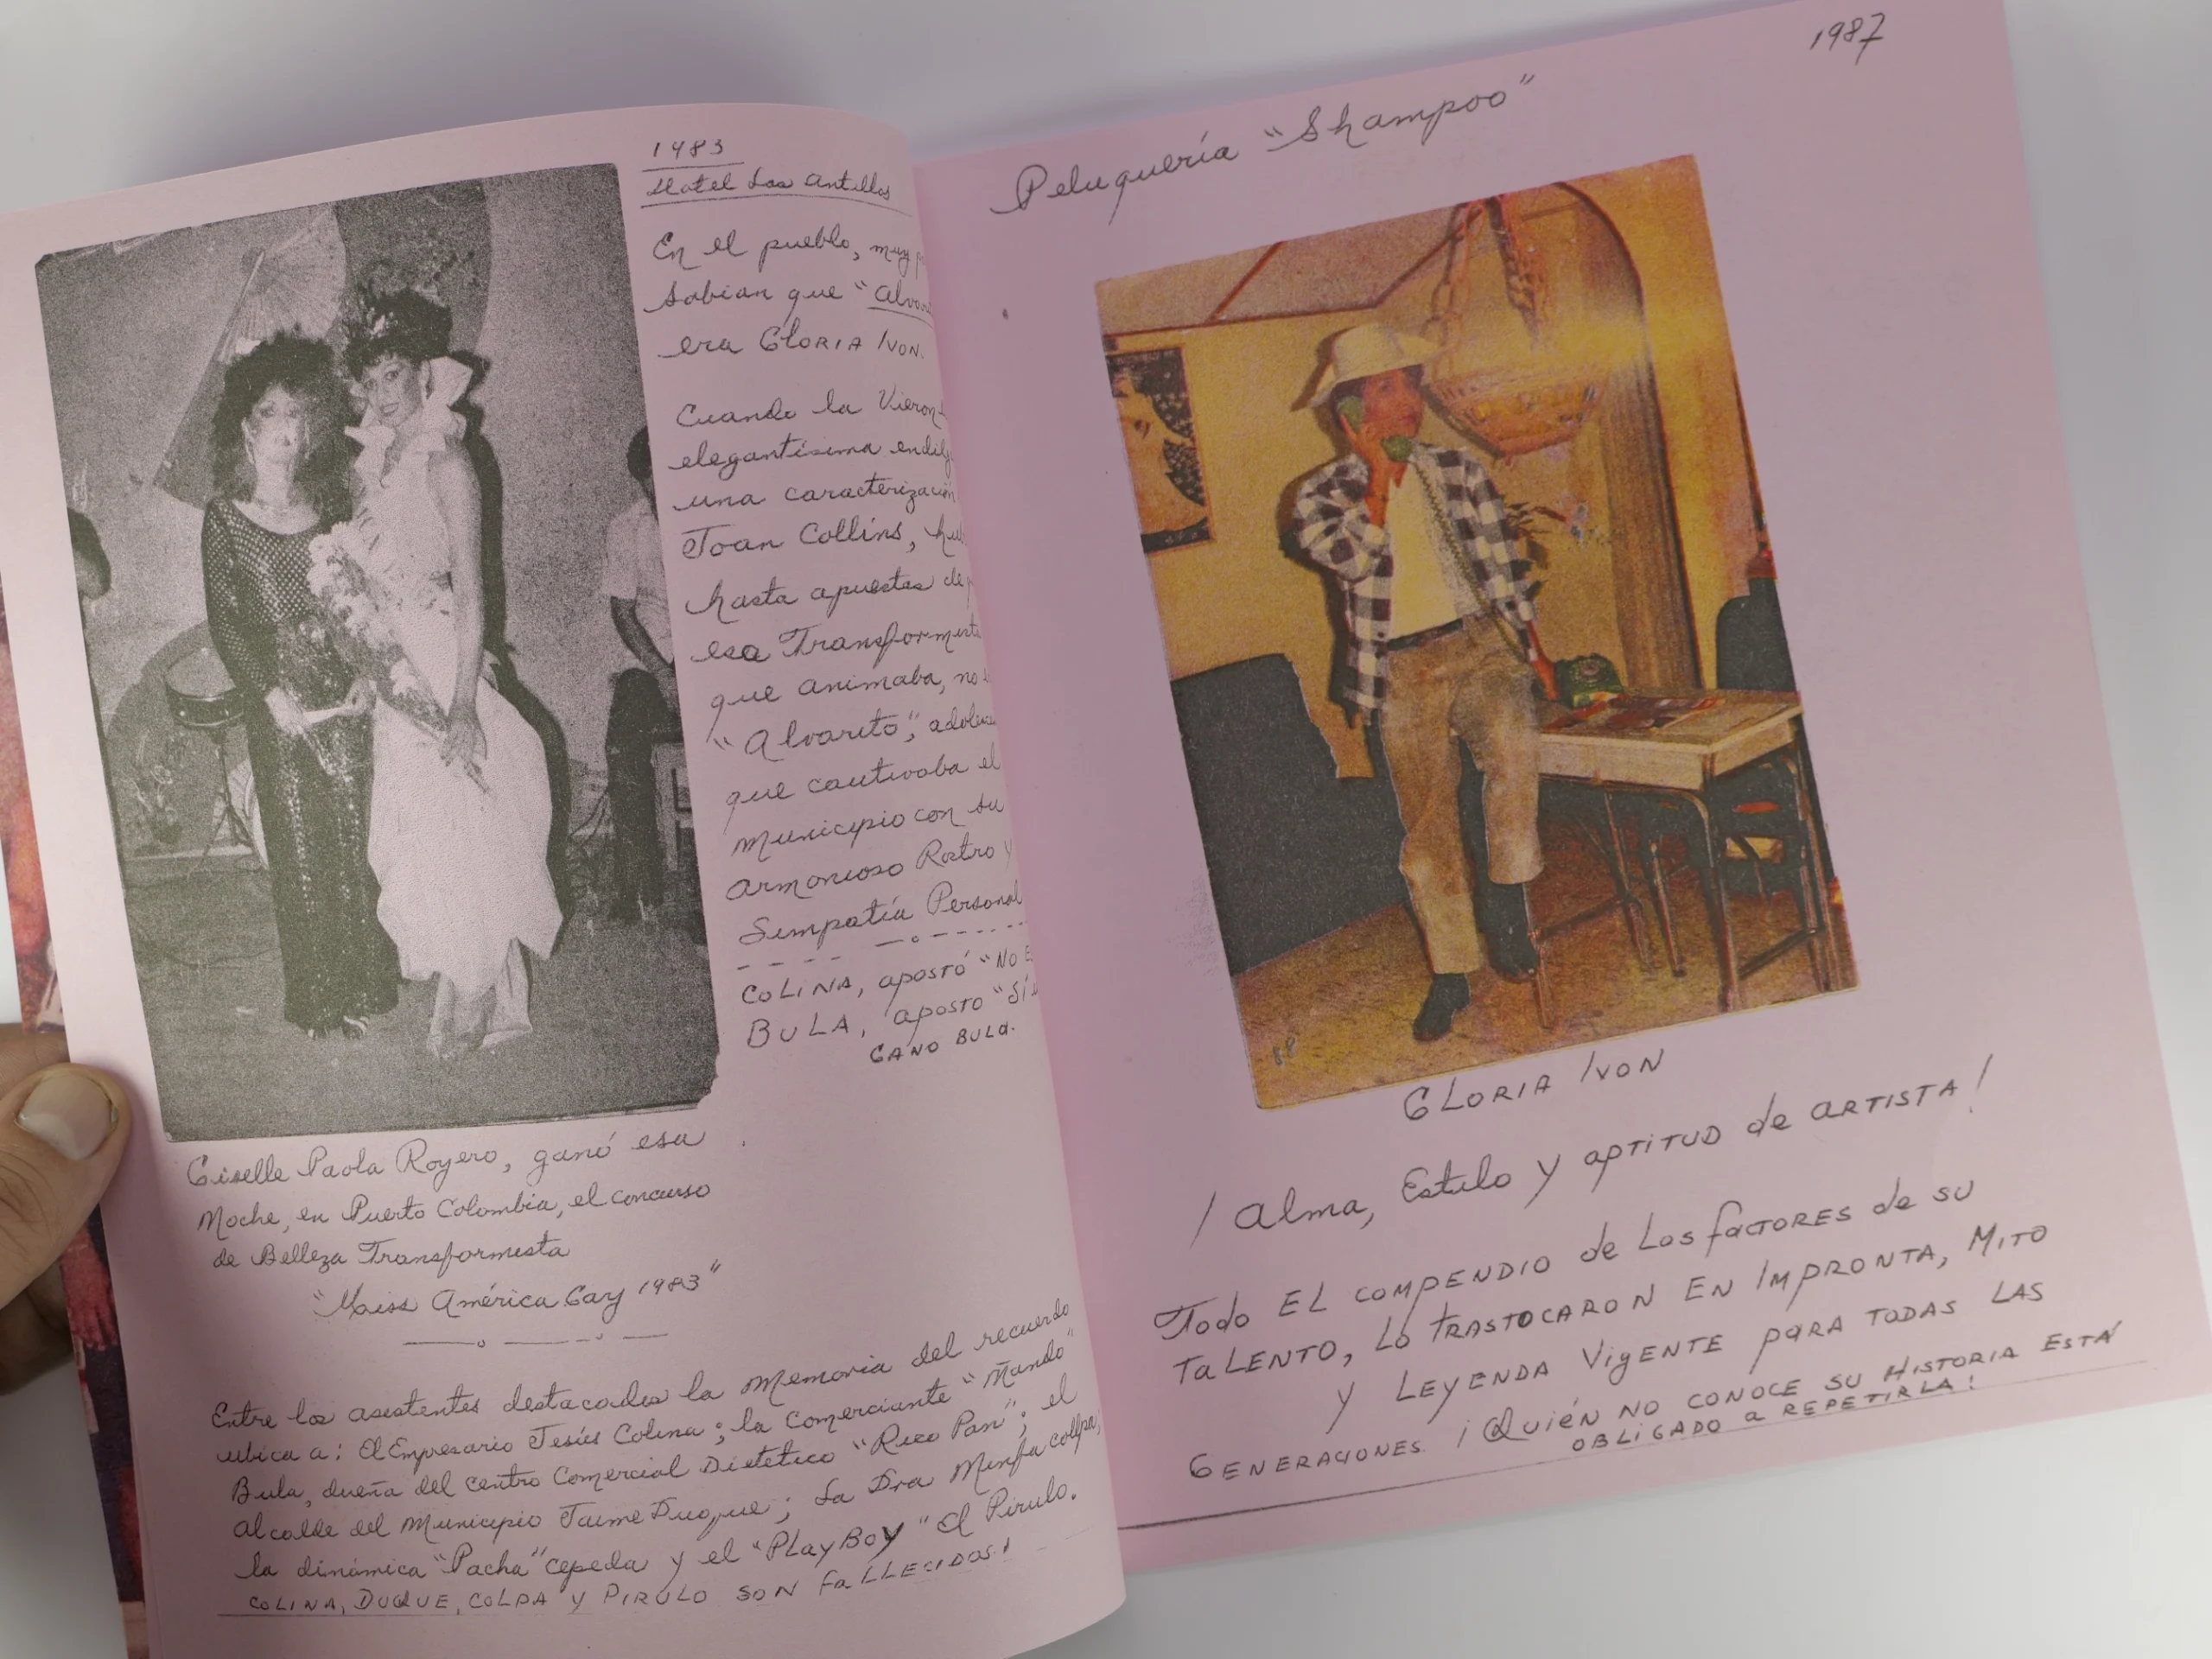 1983
Hotel Las Antillas
En el pueblo, muy
Sabian que "Alvar
era GLORIA IVON.
Cuando la Vieron
elegantísima
una caracterización
Joan Collins,
hasta apuestas de
esa Transformista
que animaba, no
"Alvarito", adoles
que cautivaba el
Municipio con su
armonioso Rostro y
Simpatía Personal
COLINA, apostó "NO E
BULA, aposto "SÍ
GANO BULA.
Giselle Paola Royero, ganó esa
Noche, en Puerto Colombia, el concurso
de Belleza Transformista
"Miss América Gay 1983"
Entre los asistentes destacados la memoria del recuerdo
ubica a: El Empresario Jesús Colina; la Comerciante "Ñando"
Bula, dueña del centro Comercial Dietético "Rico Pan"; el
Alcalde del Municipio Jaime Duque; La Dra Minfa collpa,
la dinámica "Pacha" cepeda y el "PLAYBOY" El Pirulo.
COLINA, DUQUE, COLPA Y PIRULO SON FALLECIDOS!
1987
Peluquería "Shampoo"
88
GLORIA IVON
¡Alma, Estilo y APTITUD de ARTISTA!
Todo EL COMPENDIO de Los factores de su
TALENTO, Lo TRASTOCARON EN IMPRONTA, MITO
Y LEYENDA VIGENTE PARA TODAS LAS
GENERACIONES. ¡QUIÉN NO CONOCE SU HISTORIA ESTÁ
OBLIGADO A REPETIRLA!